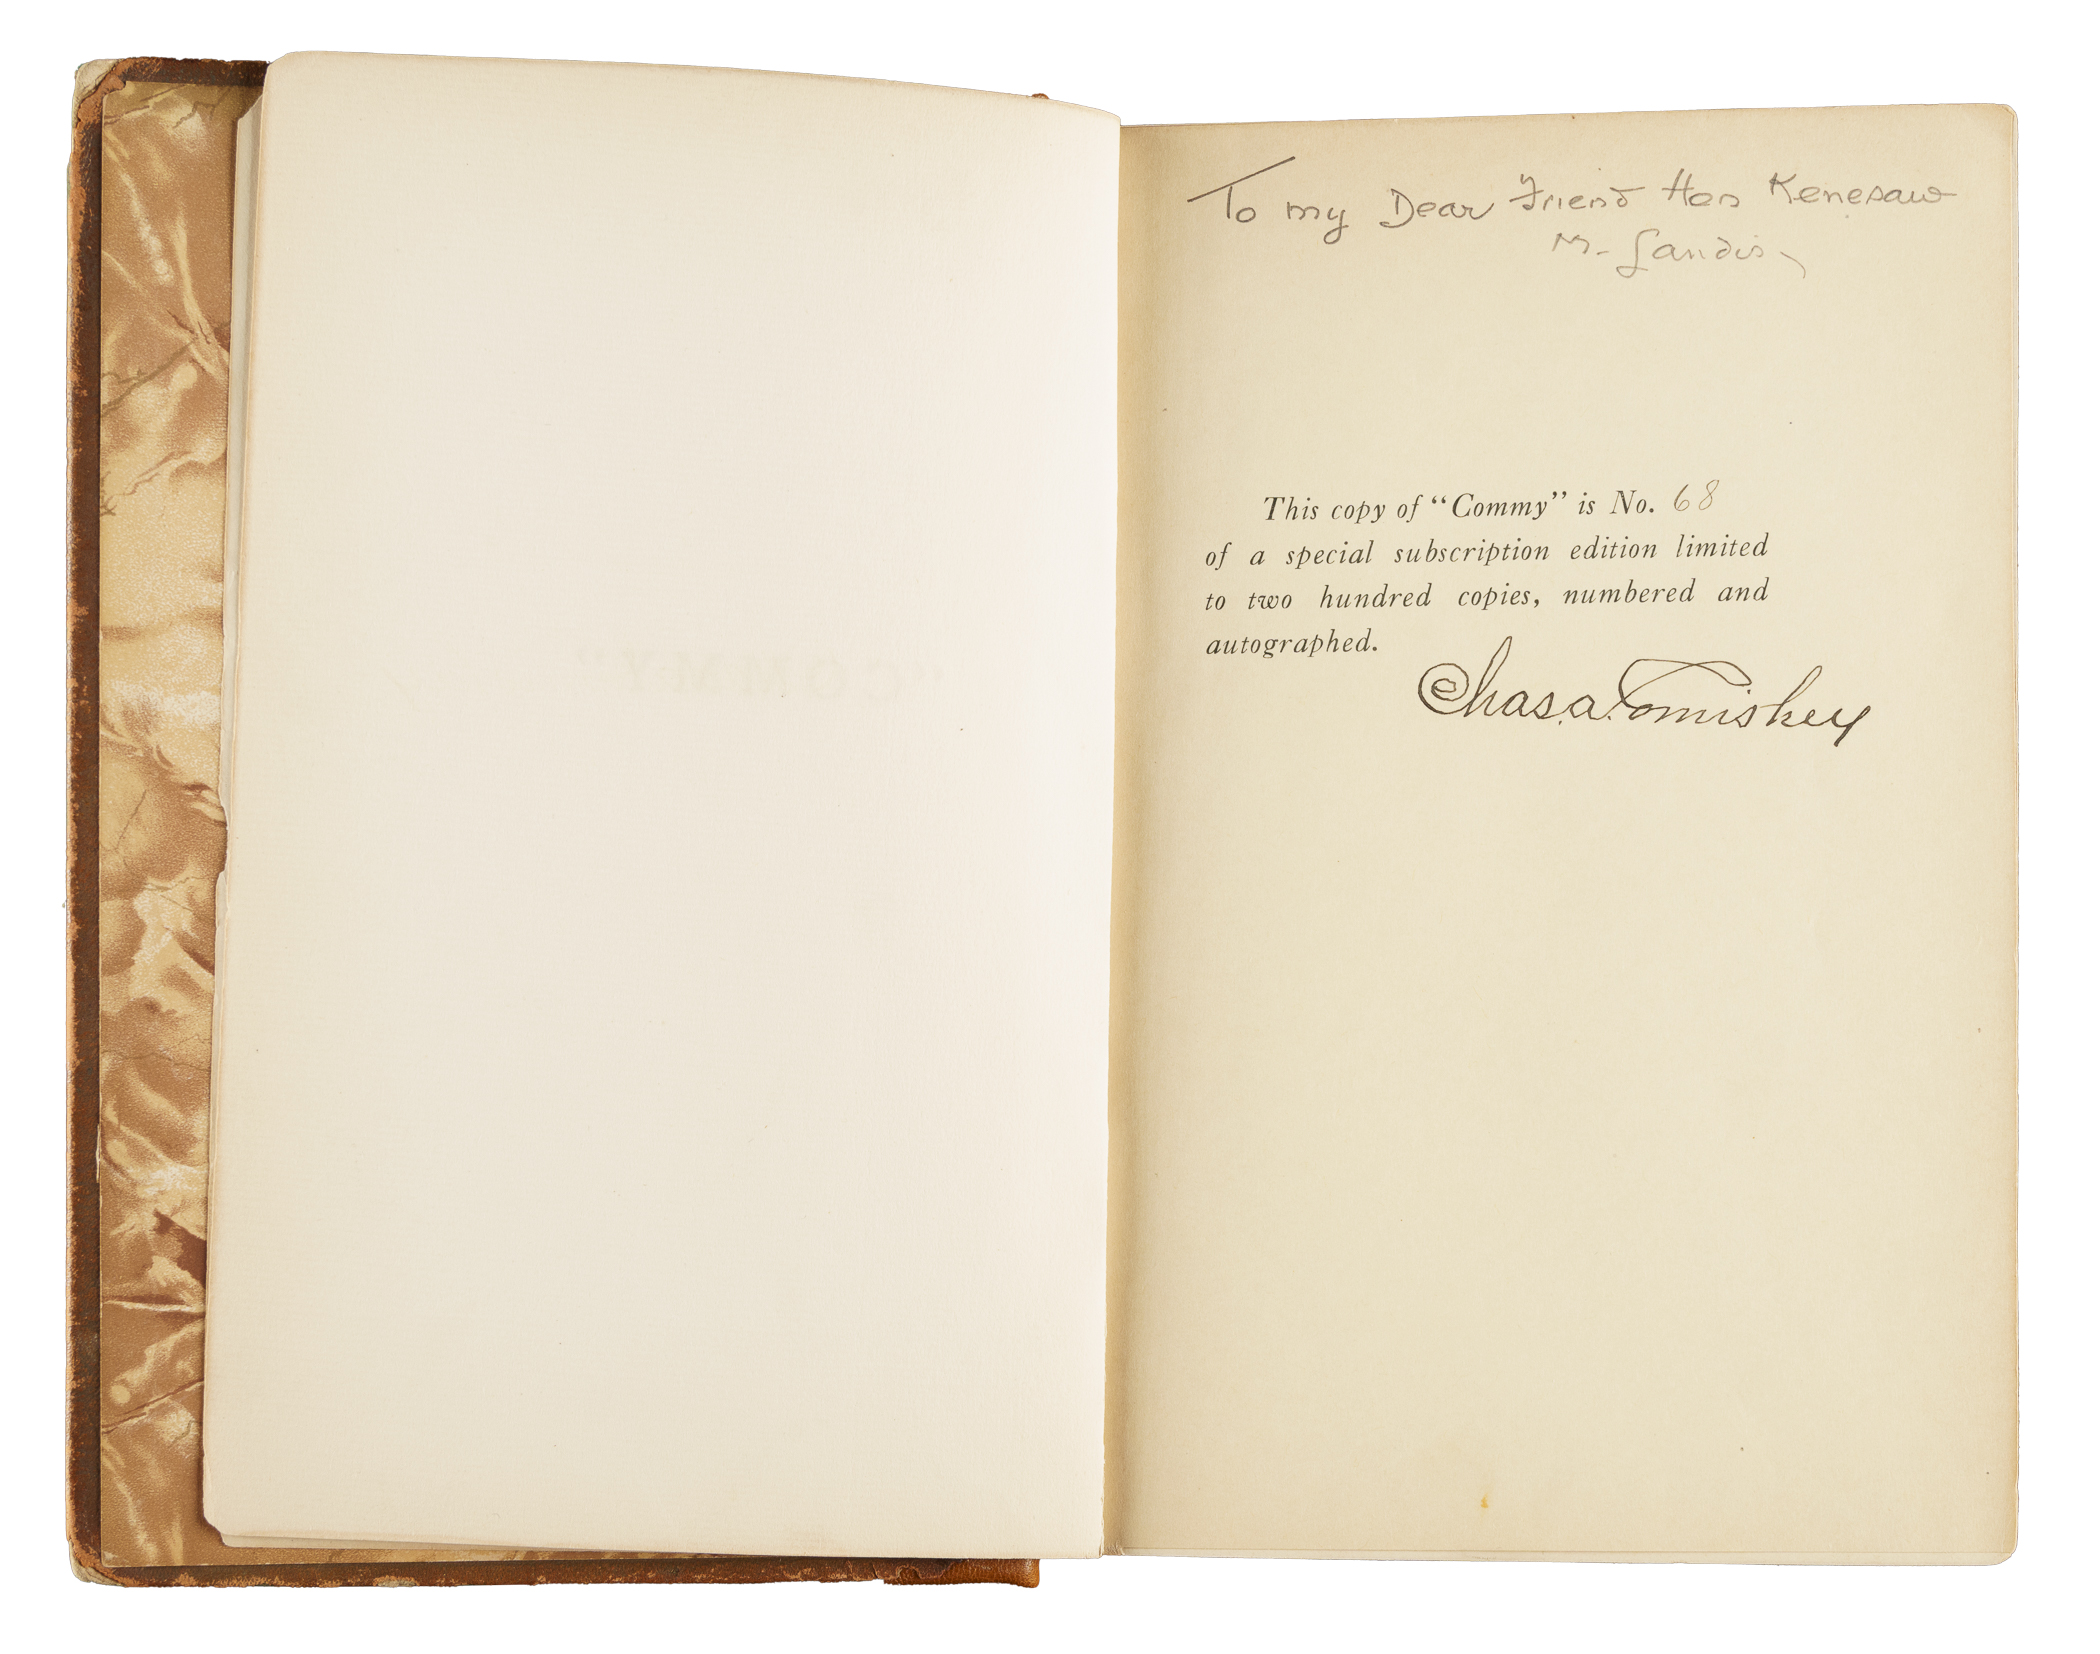 "COMMY"
To my Dear Friend Hon Kenesaw
M. Landis
This copy of “Commy” is No. 68
of a special subscription edition limited
to two hundred copies, numbered and
autographed.
Chas. a. Comiskey